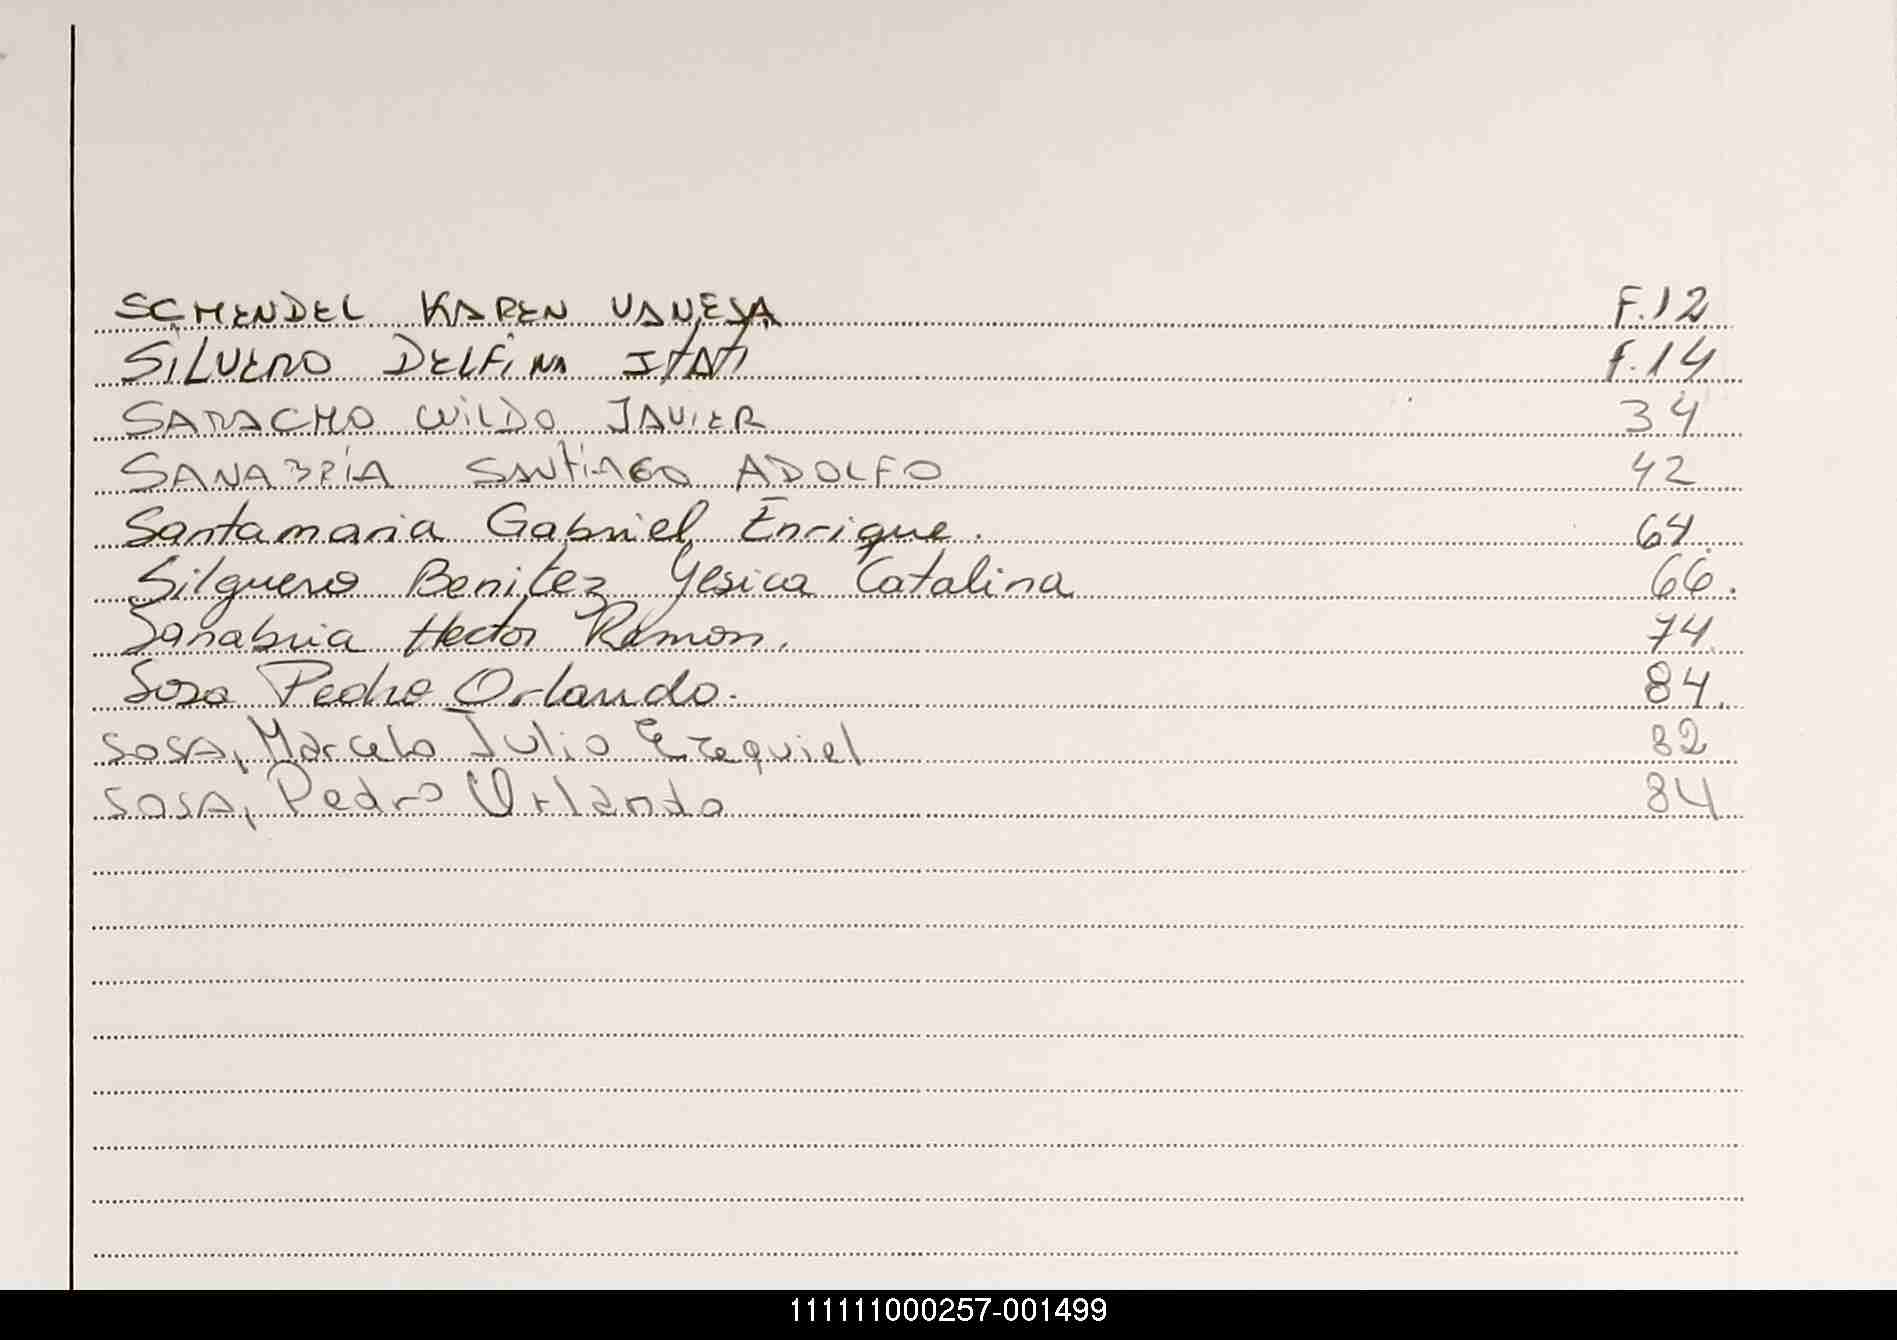 SCHENDEL KAREN VANESA F.12
SILVERO DELFINA ITATI F.14
SARACHO WILDO JAVIER 34
SANABRIA SANTIAGO ADOLFO 42
Santamaria Gabriel Enrique. 64.
Silguero Benitez Yesica Catalina 66.
Sanabria Hector Ramon. 74.
Sosa Pedro Orlando. 84.
SOSA, Marcelo Julio Ezequiel 82
SOSA, Pedro Orlando 84
111111000257-001499